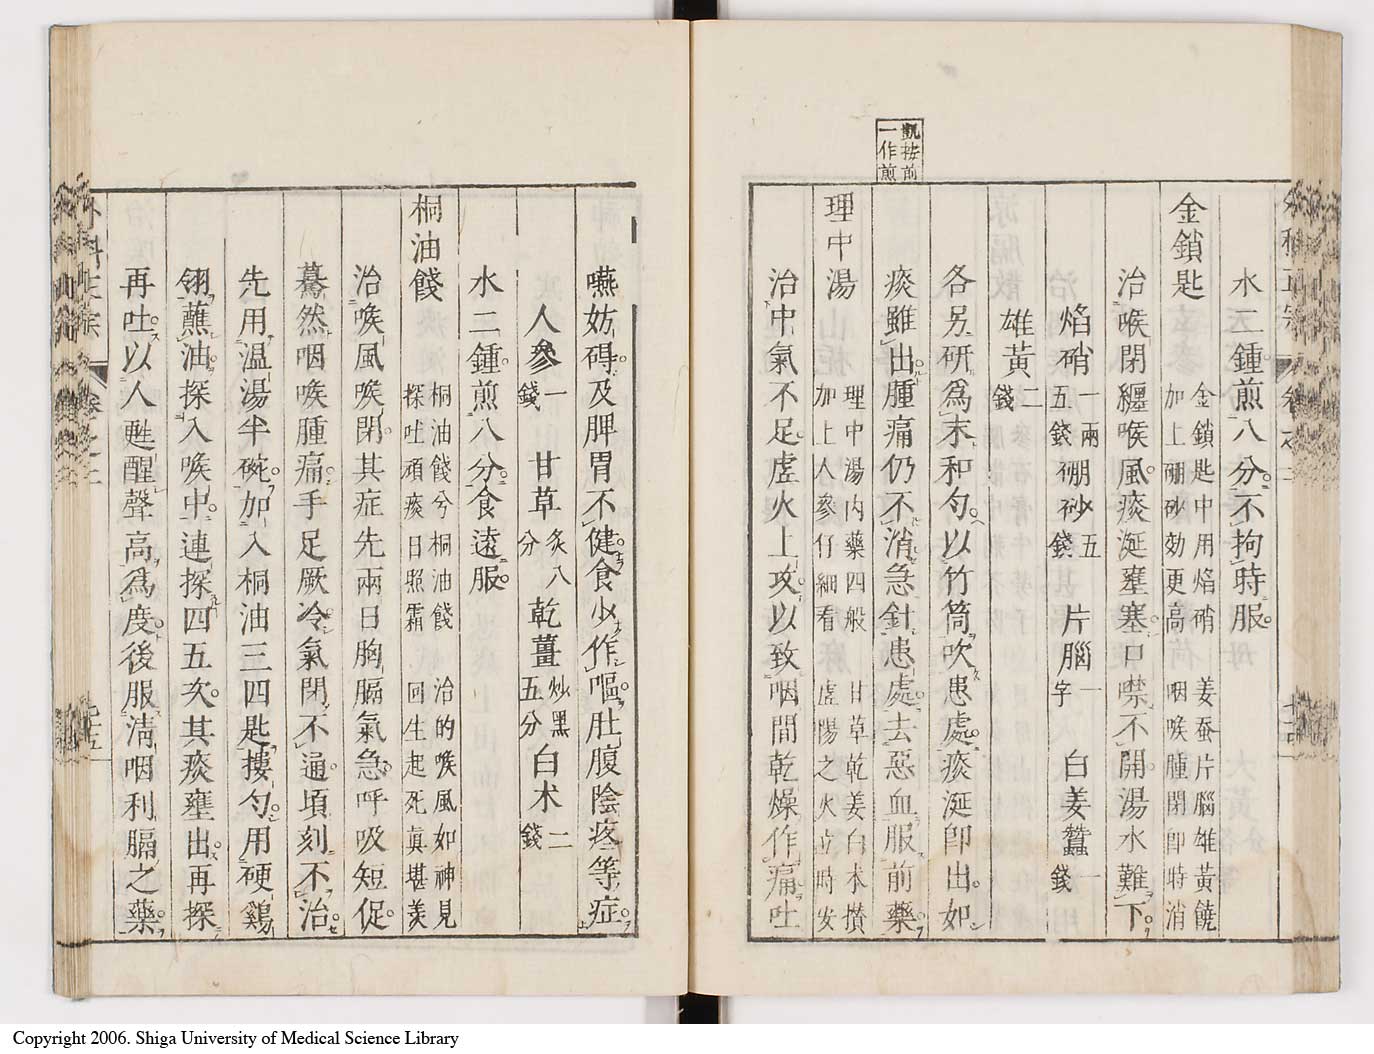 觀按前
一作煎
水二鍾煎八分不拘時服
金鎖匙
金鎖匙中用焰硝 姜蚕片腦雄黃饒
加上硼砂効更高 咽喉腫閉即時消
治喉閉纏喉風痰涎壅塞口噤不開湯水難下
焰硝一兩五錢 硼砂五錢 片腦一字 白姜蠶一錢
雄黃二錢
各另研為末和勻以竹筒吹患處痰涎即出如
痰雖出腫痛仍不消急針患處去惡血服前藥
理中湯
理中湯內藥四般 甘草乾姜白朮攢
加上人參仔細看 虛陽之火立時安
治中氣不足虛火上攻以致咽間乾燥作痛吐
嚥妨碍及脾胃不健食少作嘔肚腹陰疼等症
人參一錢 甘草炙八分 乾薑炒黑五分 白朮二錢
水二鍾煎八分食遠服
桐油餞
桐油餞兮桐油餞 治的喉風如神見
探吐頑痰日照霜 回生起死真堪羨
治喉風喉閉其症先兩日胸膈氣急呼吸短促
驀然咽喉腫痛手足厥冷氣閉不通頃刻不治
先用溫湯半碗加入桐油三四匙摟勻用硬鷄
翎蘸油探入喉中連探四五次其痰壅出再探
再吐以人甦醒聲高為度後服清咽利膈之藥
外科正宗 卷之二